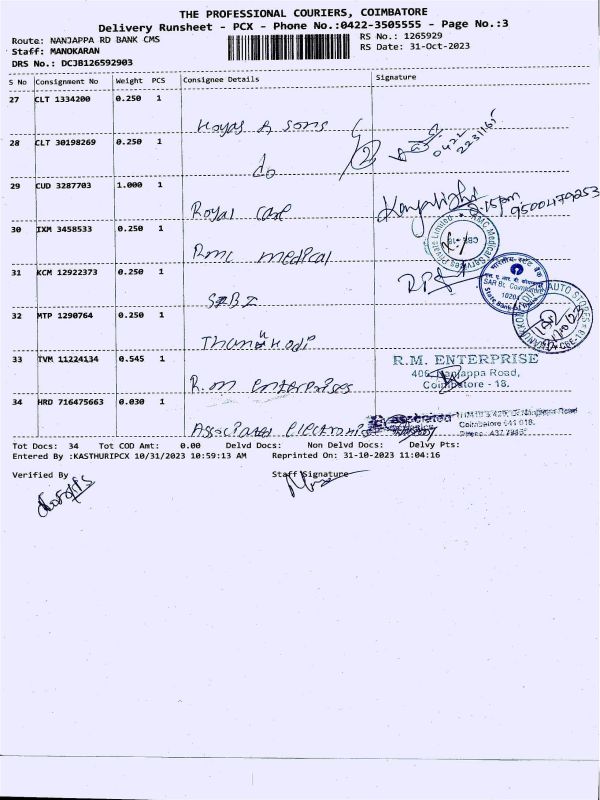 THE PROFESSIONAL COURIERS, COIMBATORE
Delivery Runsheet - PCX - Phone No.:0422-3505555 - Page No.:3
Route: NANJAPPA RD BANK CMS RS No.: 1265929
Staff: MANOKARAN RS Date: 31-Oct-2023
DRS No.: DCJB126592903
S No Consignment No Weight PCS Consignee Details Signature
27 CLT 1334200 0.250 1
Koyas & Sons
28 CLT 30198269 0.250 1
0422
2231161
do
29 CUD 3287703 1.000 1
Royal Care
.15pm
9500479253
30 IXM 3458533 0.250 1
RMC medical
RMC Medical Services Private Limited
CBE-18
31 KCM 12922373 0.250 1
भारतीय स्टेट बैंक
SAR Br. Coimbatore
10204
State Bank of India
SBI
32 MTP 1290764 0.250 1
AUTO STORES
CBE-18
33 TVM 11224134 0.545 1
R.M. ENTERPRISE
406, Nanjappa Road,
Coimbatore - 18.
R.m Enterprises
34 HRD 716475663 0.030 1
Associated Electronics
Associated
Nanjappa Road
Coimbatore 641 018.
Tot Docs: 34 Tot COD Amt: 0.00 Delvd Docs: Non Delvd Docs: Delvy Pts:
Entered By :KASTHURIPCX 10/31/2023 10:59:13 AM Reprinted On: 31-10-2023 11:04:16
Verified By Staff Signature